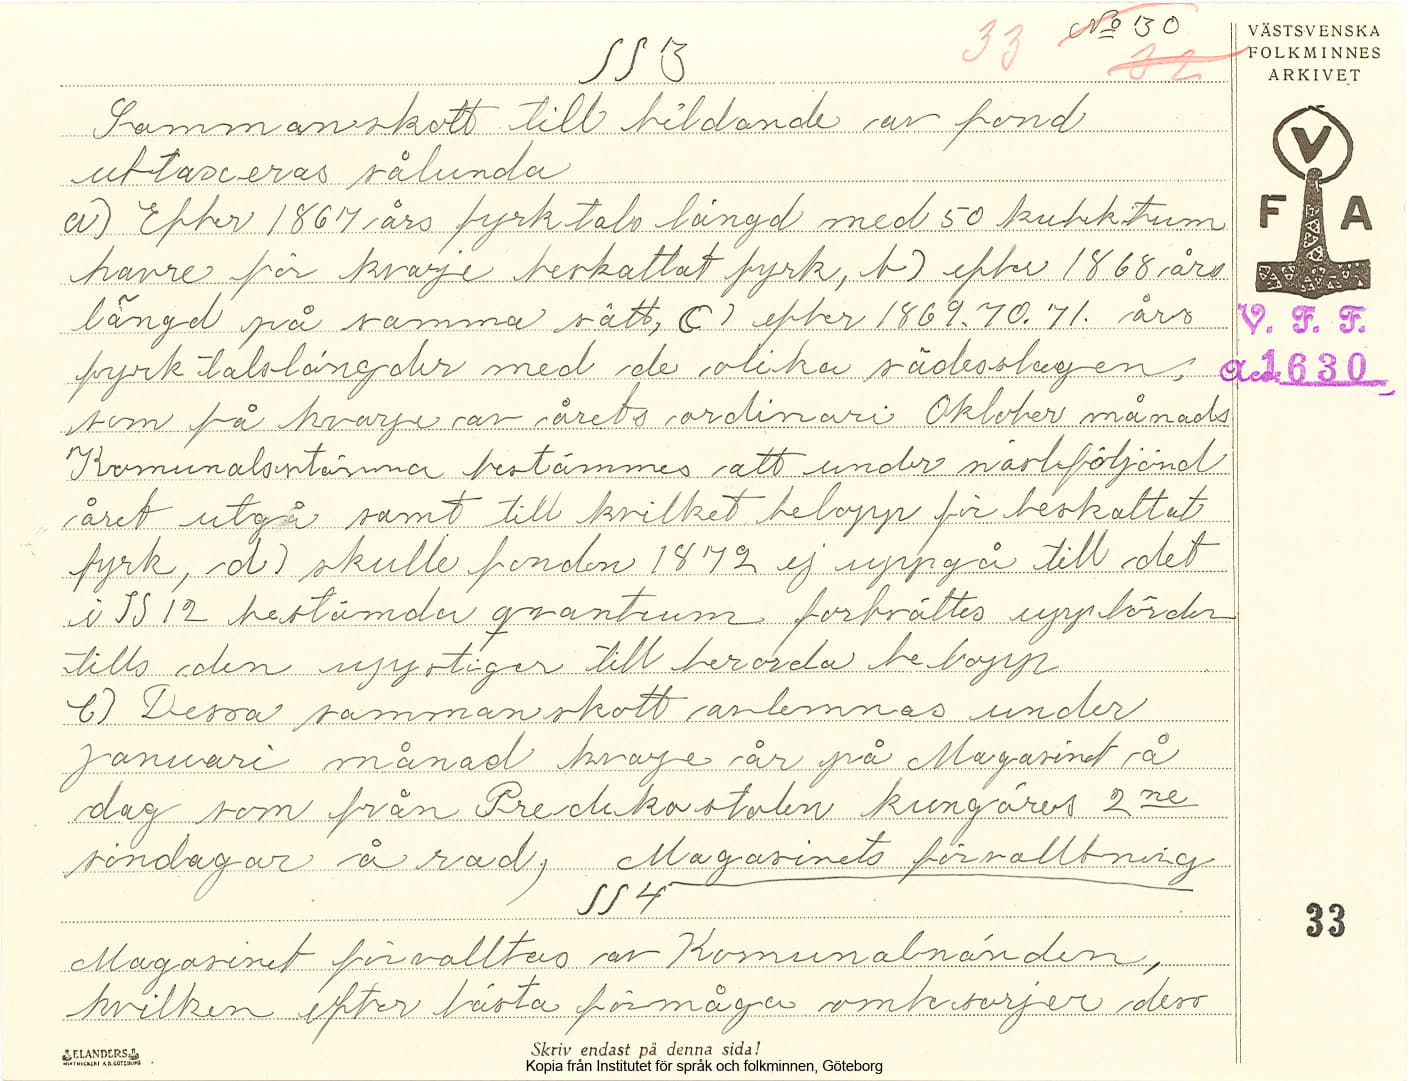 No 30
33 32
SS 3
Sammanskott till bildande av fond
uttaxeras sålunda
a) Efter 1867 års fyrktals längd med 50 kubiktum
havre för hvarje beskattat fyrk, b) efter 1868 års
längd på samma sätt, C) efter 1869. 70. 71. års
fyrktalslängder med de olika sädesslagen,
som på hvarje av årets ordinari Oktober månads
Komunalstämma bestämmes att under nästföljând
året utgå samt till hvilket belopp för beskattat
fyrk, d) skulle fonden 1872 ej uppgå till det
i SS 12 bestämda qvantum fortsättes uppbörden
tills den uppstiger till berörda belopp
C) Dessa sammanskott avlemnas under
januari månad hvarje år på Magasinet å
dag som från Predikostolen kungöres 2ne
söndagar å rad, Magasinets förvalltning
SS 4
Magasinet förvalltas av Komunalnänden,
hvilken efter bästa förmåga ombesörjer dess
VÄSTSVENSKA
FOLKMINNES
ARKIVET
V
F A
V. F. F.
acc. 1630
33
ELANDERS
Skriv endast på denna sida!
Kopia från Institutet för språk och folkminnen, Göteborg